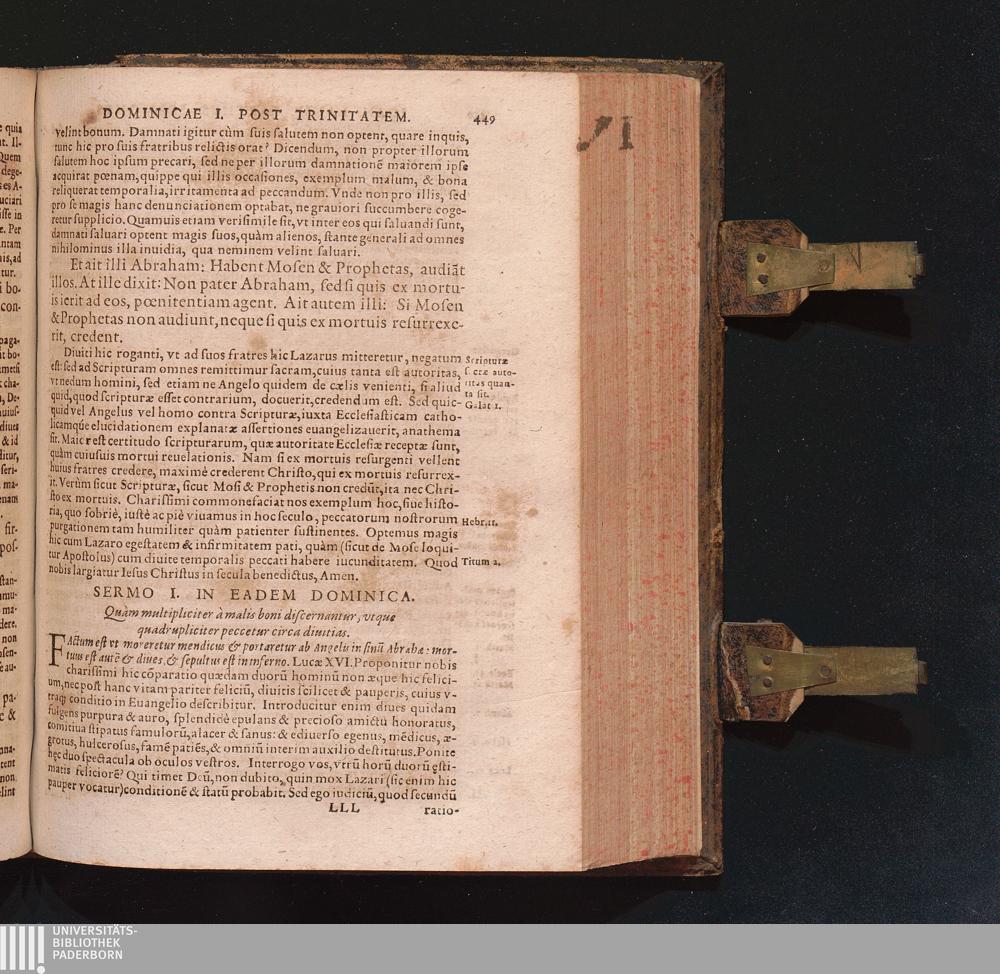 DOMINICAE I. POST TRINITATEM. 449
velint bonum. Damnati igitur cùm suis salutem non optent, quare inquis,
tunc hic pro suis fratribus relictis orat? Dicendum, non propter illorum
salutem hoc ipsum precari, sed ne per illorum damnationē maiorem ipse
acquirat pœnam, quippe qui illis occasiones, exemplum malum, & bona
reliquerat temporalia, irritamenta ad peccandum. Vnde non pro illis, sed
pro se magis hanc denunciationem optabat, ne grauiori succumbere coge-
retur supplicio. Quamuis etiam verisimile sit, vt inter eos qui saluandi sunt,
damnati saluari optent magis suos, quàm alienos, stante generali ad omnes
nihilominus illa inuidia, qua neminem velint saluari.
Et ait illi Abraham: Habent Mosen & Prophetas, audiāt
illos. At ille dixit: Non pater Abraham, sed si quis ex mortu-
is ierit ad eos, pœnitentiam agent. Ait autem illi: Si Mosen
& Prophetas non audiunt, neque si quis ex mortuis resurrexe-
rit, credent.
Diuiti hic roganti, vt ad suos fratres hic Lazarus mitteretur, negatum
est: sed ad Scripturam omnes remittimur sacram, cuius tanta est autoritas,
vt nedum homini, sed etiam ne Angelo quidem de cælis venienti, si aliud
quid, quod scripturæ esset contrarium, docuerit, credendum est. Sed quic-
quid vel Angelus vel homo contra Scripturæ, iuxta Ecclesiasticam catho-
licamque elucidationem explanatæ assertiones euangelizauerit, anathema
sit. Maior est certitudo scripturarum, quæ autoritate Ecclesiæ receptæ sunt,
quàm cuiusuis mortui reuelationis. Nam si ex mortuis resurgenti vellent
huius fratres credere, maximè crederent Christo, qui ex mortuis resurrex-
it. Verùm sicut Scripturæ, sicut Mosi & Prophetis non credūt, ita nec Chri-
sto ex mortuis. Charissimi commonefaciat nos exemplum hoc, siue histo-
ria, quo sobriè, iustè ac piè viuamus in hoc seculo, peccatorum nostrorum
purgationem tam humiliter quàm patienter sustinentes. Optemus magis
hic cum Lazaro egestatem & infirmitatem pati, quàm (sicut de Mose loqui-
tur Apostolus) cum diuite temporalis peccati habere iucunditatem. Quod
nobis largiatur Iesus Christus in secula benedictus, Amen.
Scripturæ
s. cræ auto-
ritas quan-
ta sit.
Galat 1.
Hebr. 11.
Titum 2.
SERMO I. IN EADEM DOMINICA.
Quàm multipliciter à malis boni discernantur, vtque
quadrupliciter peccetur circa diuitias.
FActum est vt moreretur mendicus & portaretur ab Angelis in sinū Abrahæ: mor-
tuus est autē & diues, & sepultus est in inferno. Lucæ XVI. Proponitur nobis
charissimi hic cōparatio quædam duorū hominū non æque hic felici-
um, nec post hanc vitam pariter feliciū, diuitis scilicet & pauperis, cuius v-
traq; conditio in Euangelio describitur. Introducitur enim diues quidam
fulgens purpura & auro, splendidè epulans & precioso amictu honoratus,
comitiua stipatus famulorū, alacer & sanus: & ediuerso egenus, mēdicus, æ-
grotus, hulcerosus, famē patiēs, & omniū interim auxilio destitutus. Ponite
hęc duo spectacula ob oculos vestros. Interrogo vos, vtrū horū duorū ęsti-
matis feliciorē? Qui timet Deū, non dubito, quin mox Lazari (sic enim hic
pauper vocatur) conditionē & statū probabit. Sed ego iudiciū, quod secundū
LLL ratio-
UNIVERSITÄTS-
BIBLIOTHEK
PADERBORN